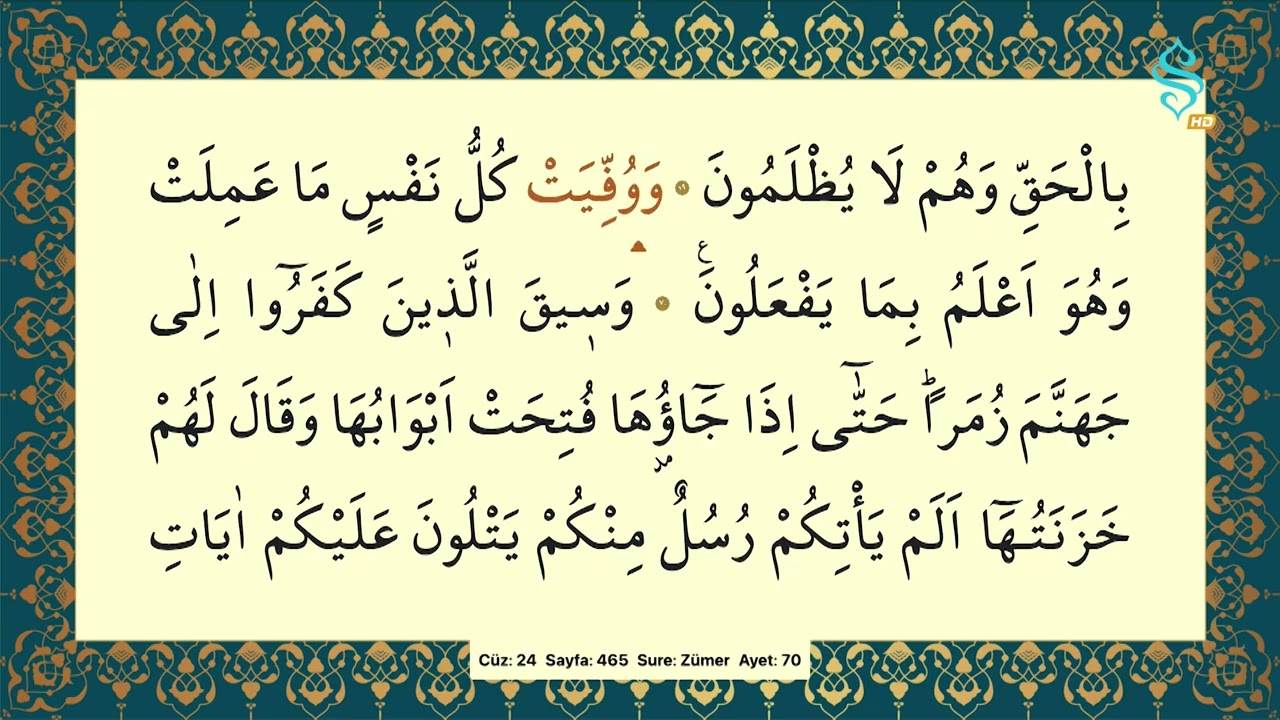 بِالْحَقِّ وَهُمْ لَا يُظْلَمُونَ ﴿٦٩﴾ وَوُفِّيَتْ كُلُّ نَفْسٍ مَا عَمِلَتْ
وَهُوَ اَعْلَمُ بِمَا يَفْعَلُونَ ۟ ع ﴿٧٠﴾ وَسٖيقَ الَّذٖينَ كَفَرُٓوا اِلٰى
جَهَنَّمَ زُمَراًؕ حَتّٰٓى اِذَا جَٓاؤُ۫هَا فُتِحَتْ اَبْوَابُهَا وَقَالَ لَهُمْ
خَزَنَتُهَٓا اَلَمْ يَأْتِكُمْ رُسُلٌ مِنْكُمْ يَتْلُونَ عَلَيْكُمْ اٰيَاتِ
HD
Cüz: 24 Sayfa: 465 Sure: Zümer Ayet: 70